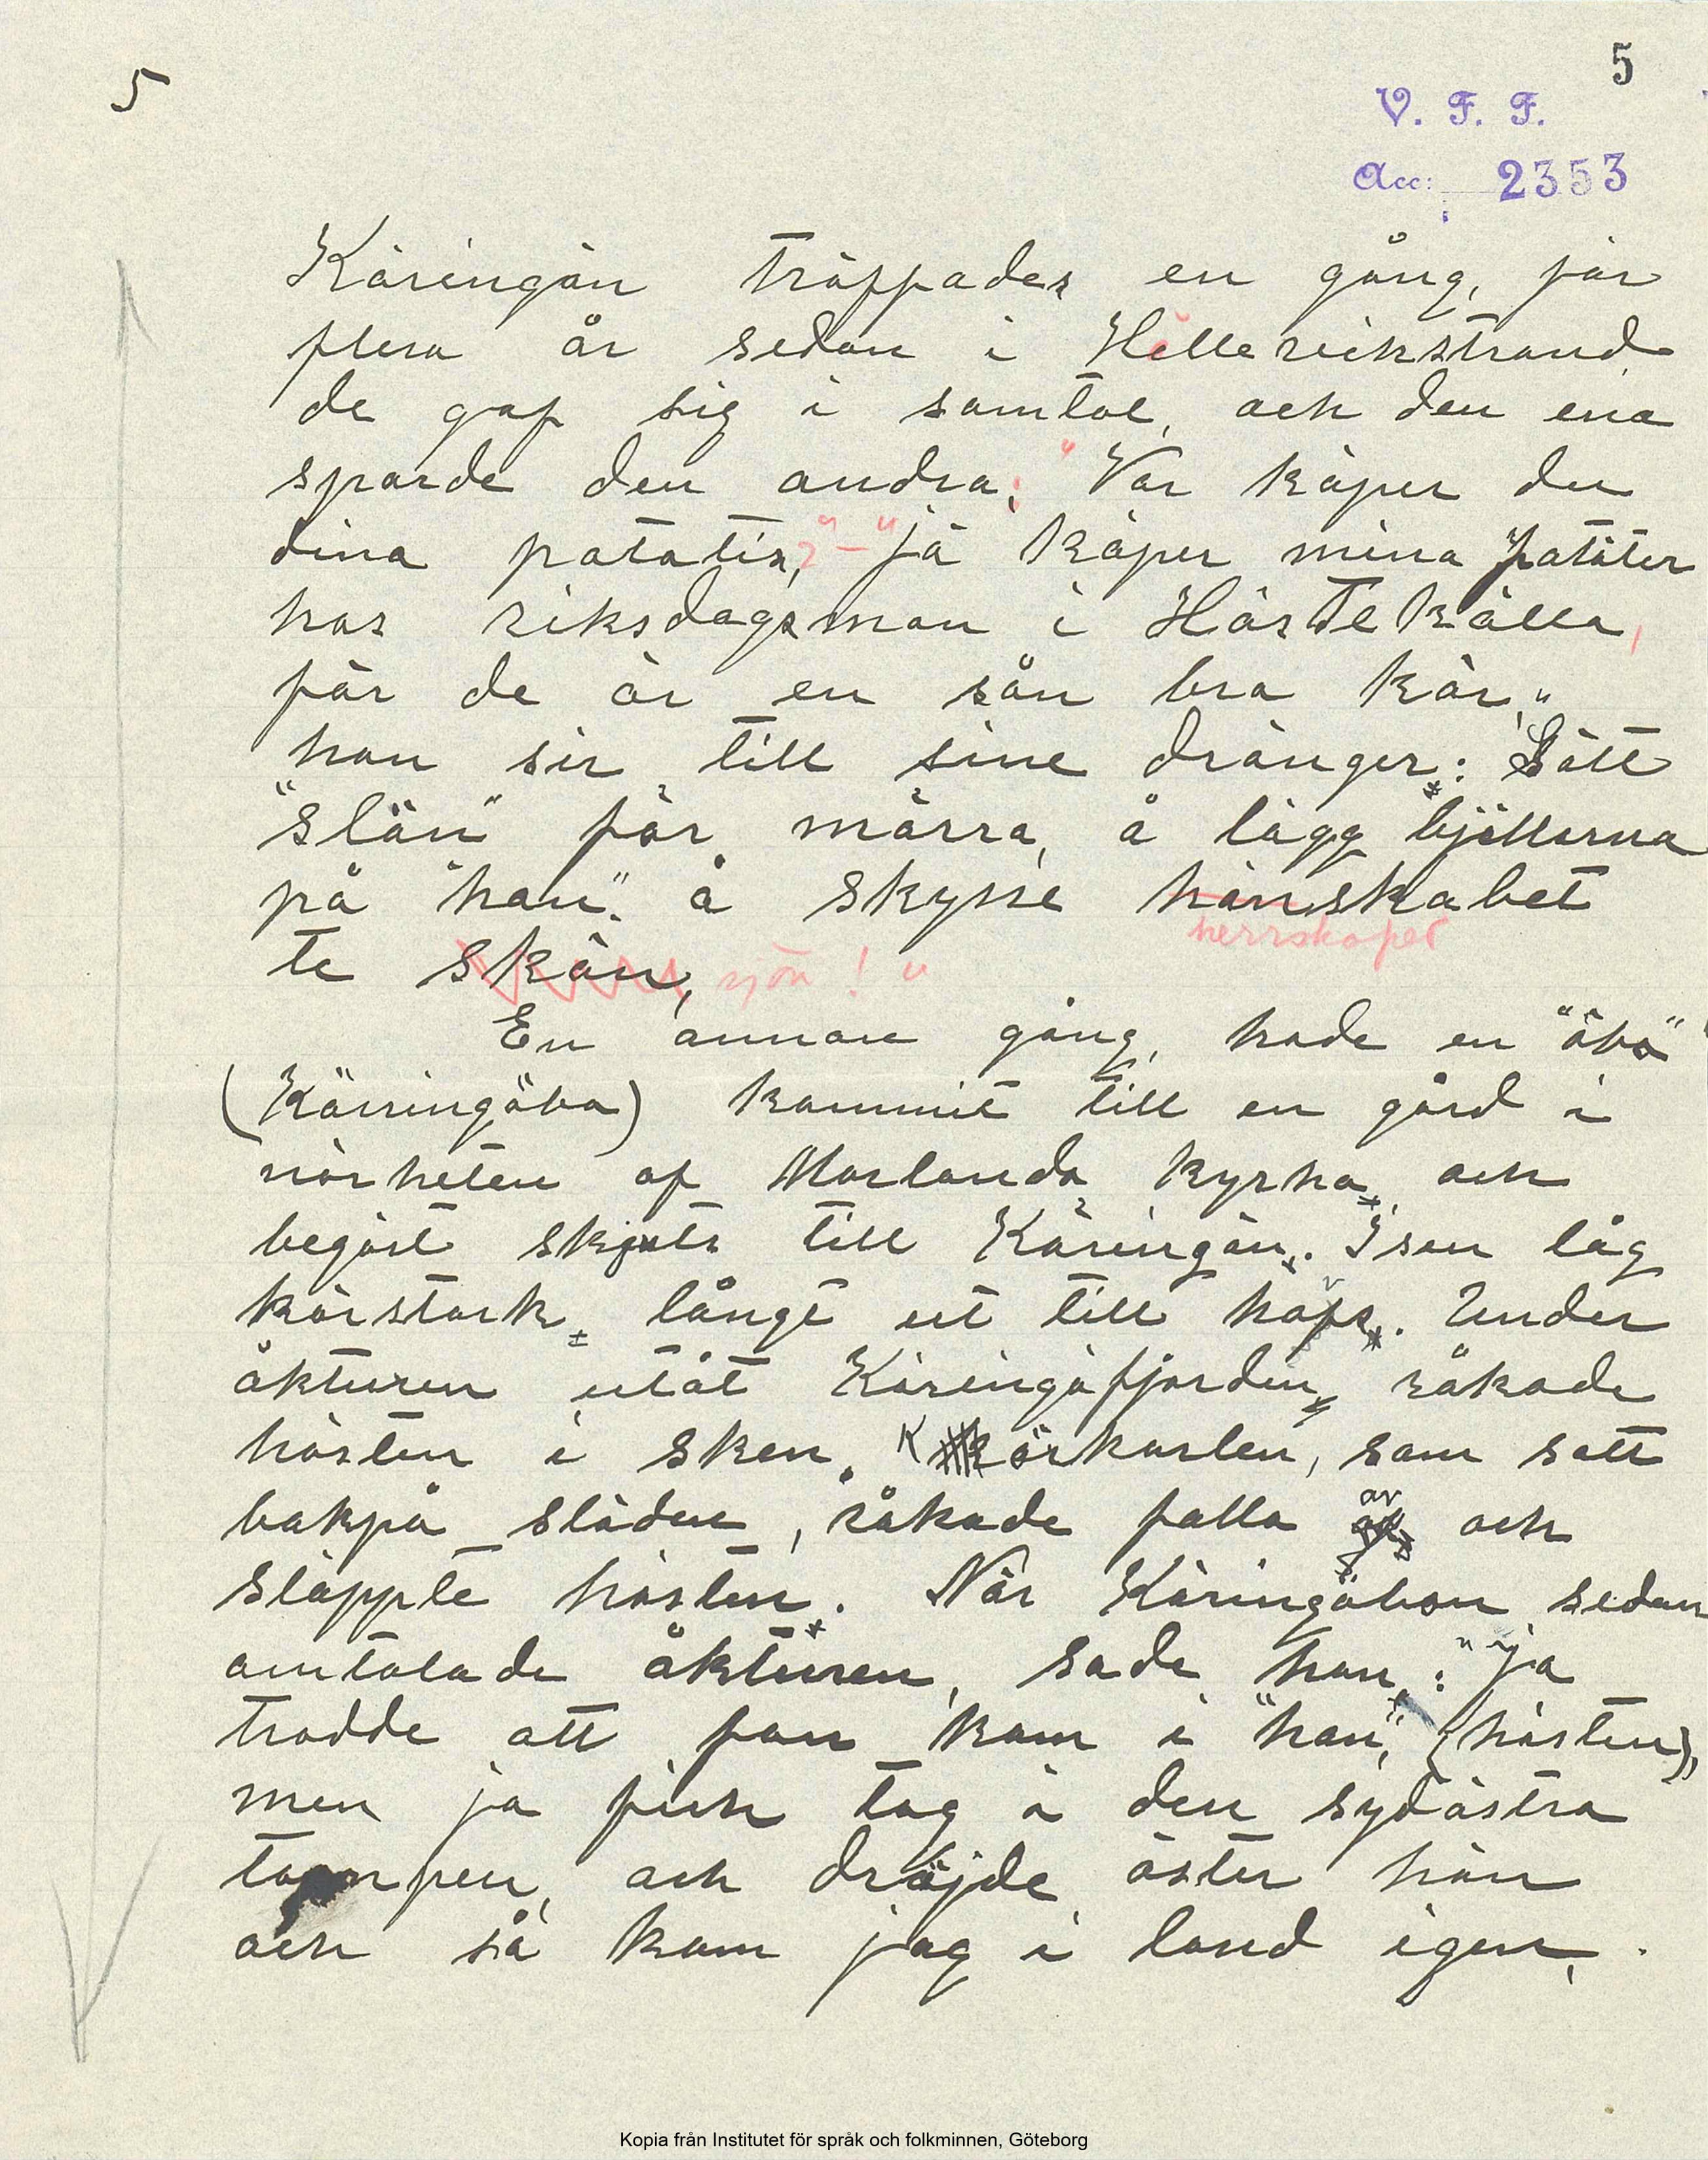 5
5
V. F. F.
Acc: 2353
Käringön träffades en gång, för
flera år sedan i Hälleviekstrand
de gaf sig i samtal, och den ena
sporde den andra: "Var köper du
dina potatis,?" – "Jä köper mina patäter
hos riksdagsman i Härtekälla,
för de är en sån bra kär,"
han sir till sine dränger: Sätt
"slän" för märra, å lägg bjällerna
på "han". å skysse hänskabet
herrskapet
te skön, sjön!"
En annan gång, hade en "öbo"
(Käringöbo) kommit till en gård i
närheten af Morlanda kyrka, och
begärt skjuts till Käringön. Isen låg
körstark långt ut till hafs. Under
åkturen utåt Käringöfjorden, råkade
hästen i sken. Körkarlen, som satt
bakpå släden, råkade falla av och
släppte hästen. När Käringöbon sedan
omtalade åkturen, sade han: "ja
trodde att fan kom i "han", (hästen),
men ja fick tag i den sydöstra
tampen, och dröjde öster hän
och så kom jag i land igen.
Kopia från Institutet för språk och folkminnen, Göteborg